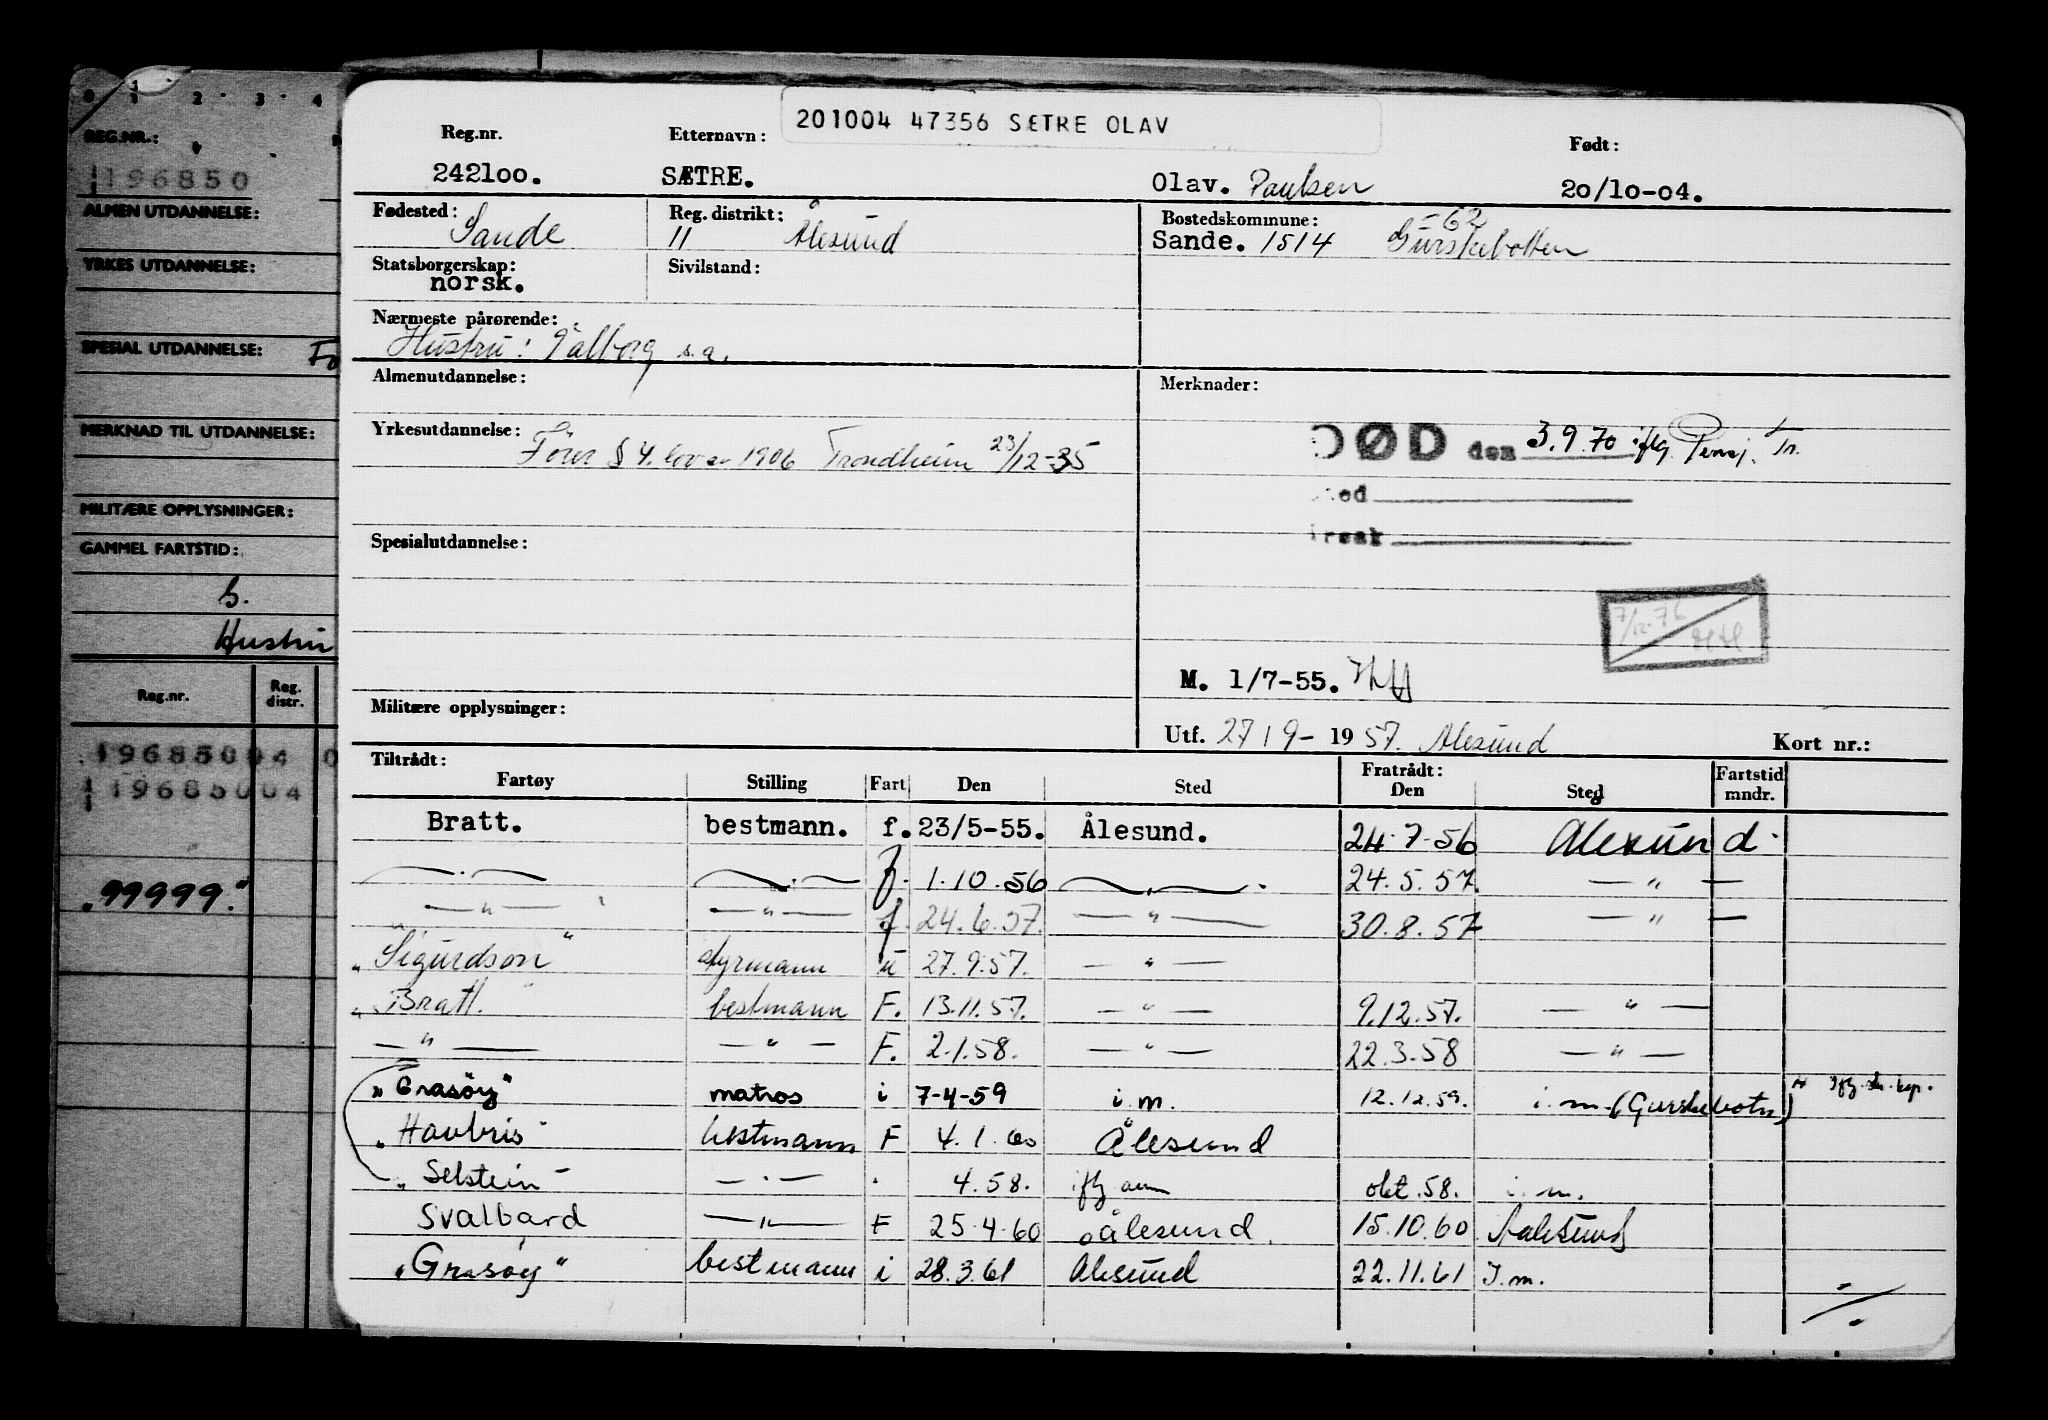 0 1 2 3 4
REG.NR.:
196850
ALMEN UTDANNELSE:
YRKES UTDANNELSE:
SPESIAL UTDANNELSE: Fø
MERKNAD TIL UTDANNELSE:
MILITÆRE OPPLYSNINGER:
GAMMEL FARTSTID:
S.
Hustru
Reg.nr. Reg. distr.
19685004 0
19685004
"99999"
201004 47356 SÆTRE OLAV
Reg.nr. Etternavn: Født:
242100. SÆTRE. Olav. Paulsen 20/10-04.
Fødested: Sande Reg. distrikt: 11 Ålesund Bostedskommune: -62
Sande. 1514 Gurskebotten
Statsborgerskap: norsk. Sivilstand:
Nærmeste pårørende:
Hustru: Valborg s.a.
Almenutdannelse: Merknader:
Yrkesutdannelse: Fører § 4. lov av 1906 Trondheim 23/12-35
DØD den 3.9.70 iflg. Pensj. Tr.
sted
årsak
Spesialutdannelse:
7/12-76
M. 1/7-55.
Militære opplysninger:
Utf. 27/9-1957. Ålesund Kort nr.:
Tiltrådt: Fratrådt: Fartstid
Fartøy Stilling Fart Den Sted Den Sted mndr.
Bratt. bestmann. f. 23/5-55. Ålesund. 24-7-56 Alesund.
—.— —.— f. 1.10.56 —"— 24.5.57. —"—
—"— —"— f. 24.6.57. —"— 30.8.57 —"—
"Sigurdson" styrmann u 27.9.57. —"—
"Bratt." bestmann F. 13.11.57. —"— 9.12.57. —"—
—"— —"— F. 2.1.58. —"— 22.3.58 —"—
"Grasøy" matros i 7-4-59 i.m. 12.12.59. i.m. (Gurskebotn)
"Havbris" bestmann F 4.1.60 Ålesund
"Selstein" —.— . 4.58. iflg am okt.58. i.m.
Svalbard —"— F 25.4.60 Ålesund. 15.10.60 Aalesund
"Grasøy" bestmann i 28.3.61 Alesund 22.11.61 I.m.